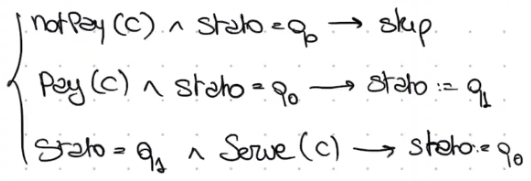 notPay(C) ∧ stato = q₀ → skip
Pay(C) ∧ stato = q₀ → stato := q₁
stato = q₁ ∧ Serve(C) → stato := q₀